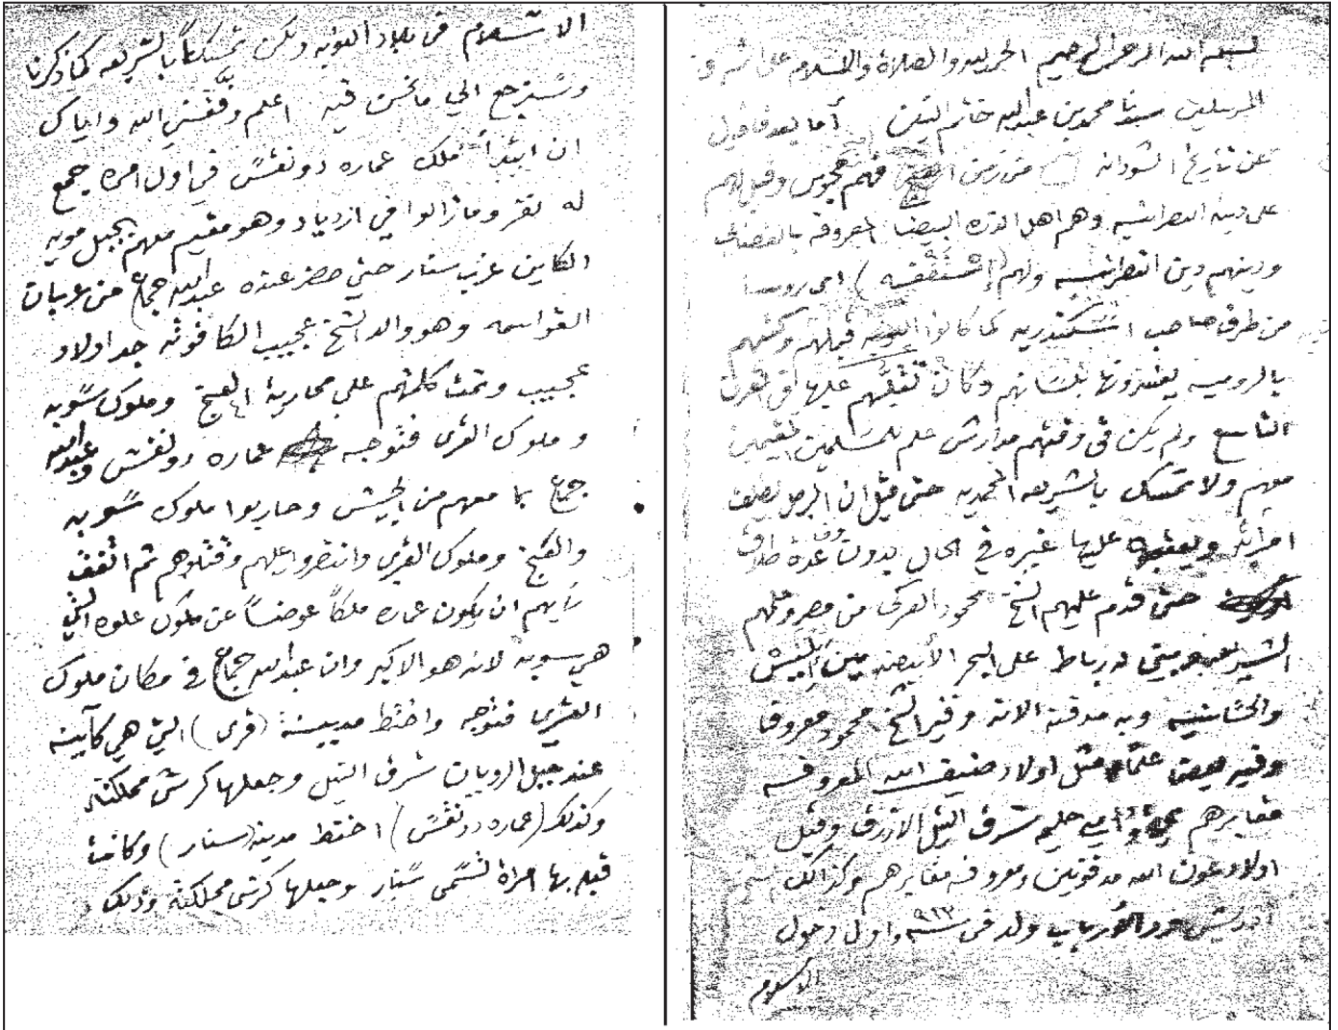 بسم الله الرحمن الرحيم الحمد لله والصلاة والسلام على اشرف
المرسلين سيدنا محمد بن عبدالله خاتم النبين أما بعد فاقول
عن تاريخ السودان من زمن فهم مجوس وقبلهم
على دينه النصرانيه وهم اهل الذره البيضا المعروفه
ودينهم دين النصرانيه ولهم (اسقفه) اى روسا
من طرف صاحب اسكندريه كما كانوا النوبه قبلهم وكتبهم
بالروميه يفسرونها بلسانهم وكان تغلبهم عليها فى القرن
التاسع ولم يكن فى وقتهم مدارس علم للمسلمين المقيمين
معهم ولا تمسك بالشريعه المحمديه حتى قيل ان الرجل يطلق
امرأته عليها غيره في الحال بدون عدة
حتى قدم عليهم الشيخ محمود العركى من مصر وعلمهم
الشريعه وبنى له رباط على البحر الأبيض بين اليس
والحسانيه وبه مدفنه الان وقبر الشيخ محمود معروف
وفيه علماء مثل اولاد ضيف الله المعروفه
مقابرهم حليم شرق النيل الازرق وقيل
اولاد عون الله مدفونين ومعروفه مقابرهم وكذلك
ادريس ود الارباب ولد فى سنه ٩١٣ واول دخول
الاسلام
الاسلام فى بلاد النوبه ولكن تمسكاً بالشريعه كما ذكرنا
وسنرجع الي ما نحن فيه اعلم وفقني الله واياك
ان ابتدأ ملك عماره دونقس في اول امره جمع
له نفر وما زالوا في ازدياد وهو مقيم معهم بجبل مويه
الكاين غرب سنار حتي حضر عنده عبدالله جماع من عربان
القواسمه وهو والد الشيخ عجيب الكافوته جد اولاد
عجيب وتمت كلمتهم علي محاربة العنج وملوك سوبه
و ملوك القرى فتوجه عماره دونقس وعبدالله
جماع بما معهم من الجيش وحاربوا ملوك سوبه
والعنج وملوك القرى وانتصروا عليهم وقتلوهم ثم اتفق
رأيهم ان يكون عماره ملكاً عوضاً عن ملوك علوه التي
هي سوبه لانه هو الاكبر وان عبدالله جماع في مكان ملوك
القرى فتوجه واختط مدينة (قرى) التي هي كآينه
عند جبل الرويان شرق النيل وجعلها كرسى مملكته
وكذلك (عماره دونقس) اختط مدينة (سنار) وكانت
قبله بها امراة تسمى سنار وجعلها كرسى مملكته وذلك